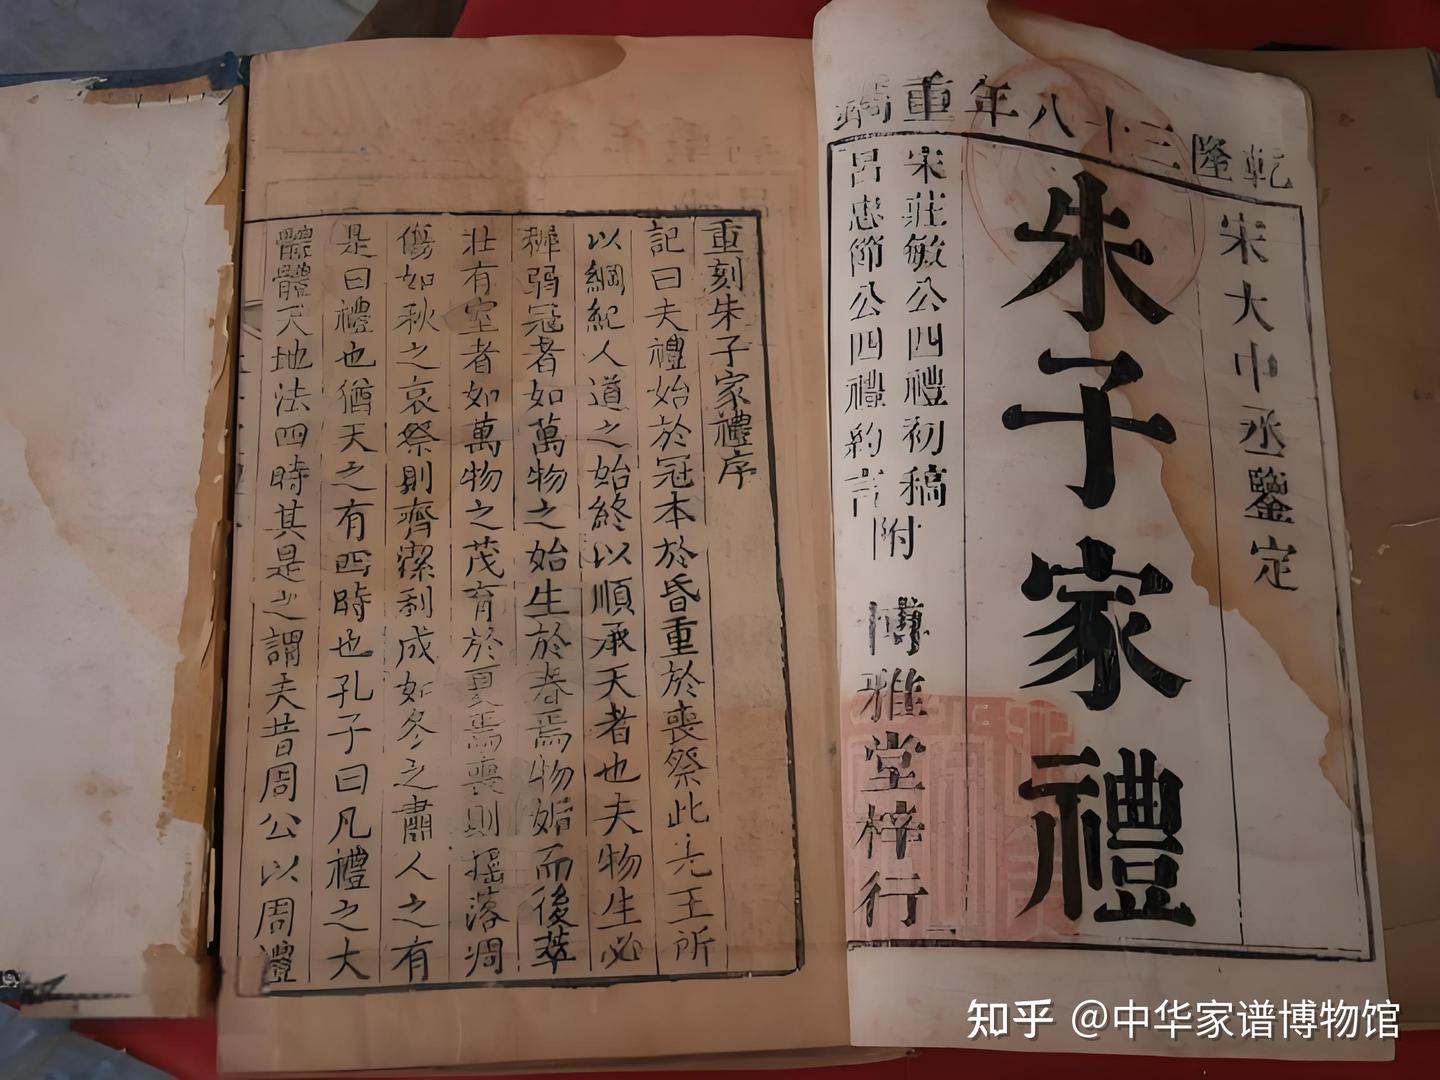 乾隆三十八年重鐫
宋大中丞鑒定
朱子家禮
宋莊敏公四禮初稿
呂忠節公四禮約言
附
博雅堂梓行
重刻朱子家禮序
記曰夫禮始於冠本於昏重於喪祭此先王所
以綱紀人道之始終以順承天者也夫物生必
穉弱冠者如萬物之始生於春焉物始而後萃
壯有室者如萬物之茂育於夏焉喪則搖落凋
傷如秋之哀祭則齊潔利成如冬之肅人之有
是曰禮也猶天之有四時也孔子曰凡禮之大
體體天地法四時其是之謂夫昔周公以周禮
知乎 @中华家谱博物馆